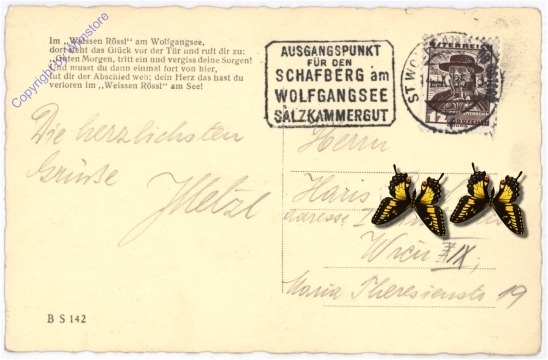 Im „Weissen Rössl" am Wolfgangsee,
dort steht das Glück vor der Tür und ruft dir zu:
„Guten Morgen, tritt ein und vergiss deine Sorgen!
Und musst du dann einmal fort von hier,
tut dir der Abschied weh; dein Herz das hast du
verloren im „Weissen Rössl" am See!
AUSGANGSPUNKT
FÜR DEN
SCHAFBERG am
WOLFGANGSEE
SALZKAMMERGUT
ST. WO
ÖSTERREICH
12
Die herzlichsten
Grüße
Herrn
Hans
Adresse
Wien XIX,
Maria Theresienstr 19
B S 142